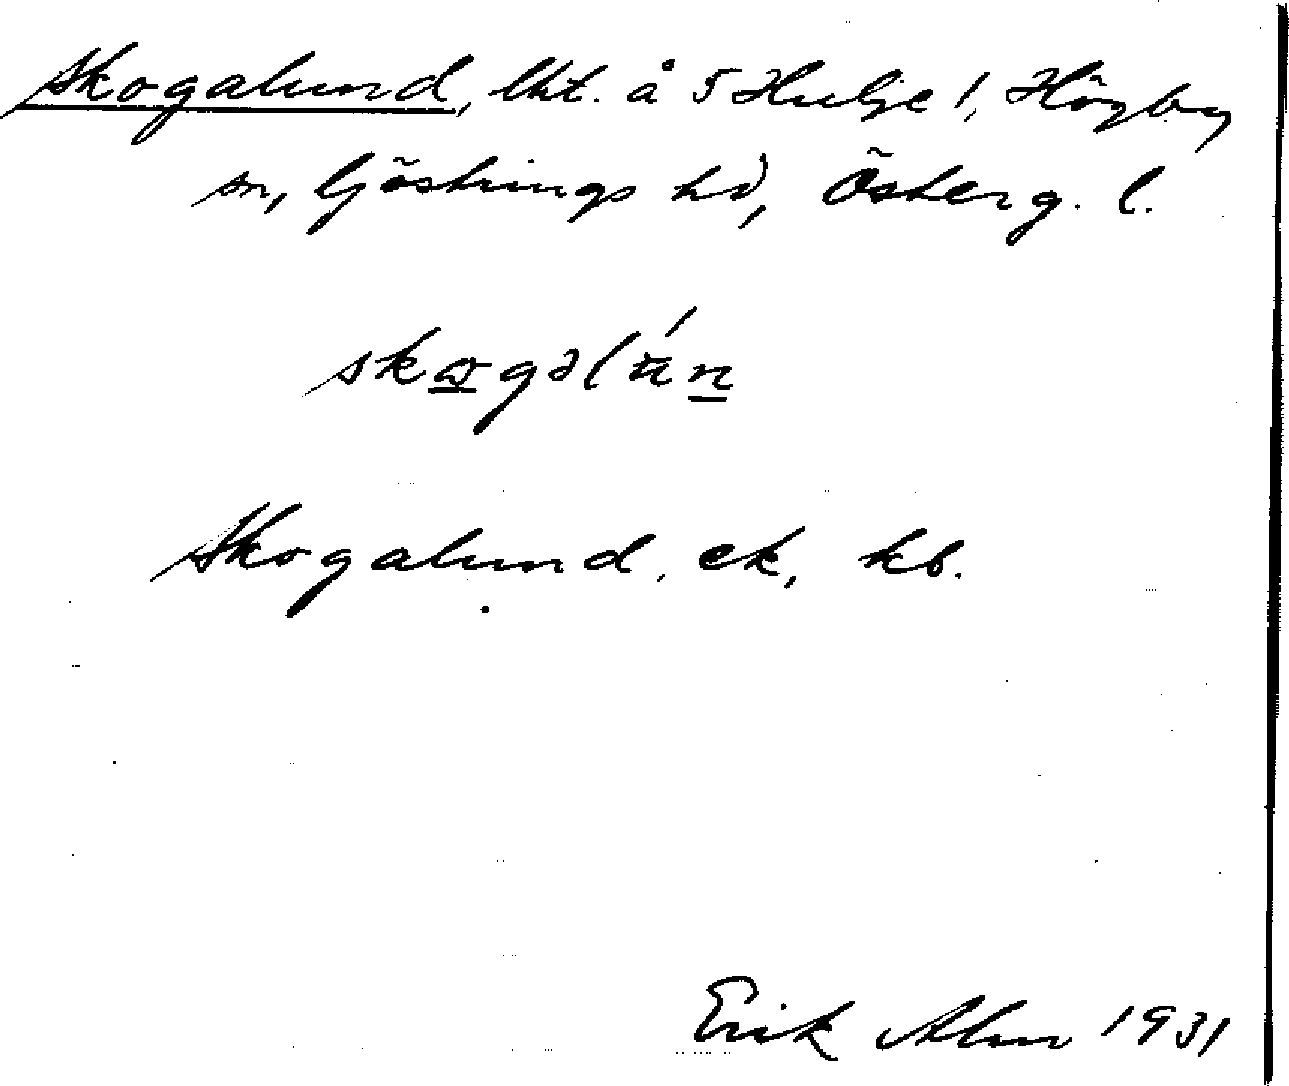 Skogalund, lht. å 5 Hulje 1, Högby
sn, Göstrings hd, Österg. l.
skogəlún
Skogalund, ek, kb.
Erik Alm 1931